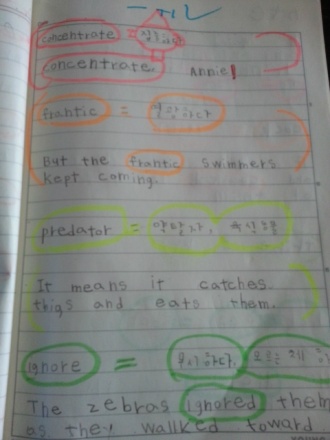 concentrate = 집중하다
concentrate. Annie!
frantic =
But the frantic swimmers
kept coming.
predator = 약탈자,
It means it catches
thigs and eats them.
ignore = 무시하다,
The zebras ignored them
as they wallked toward